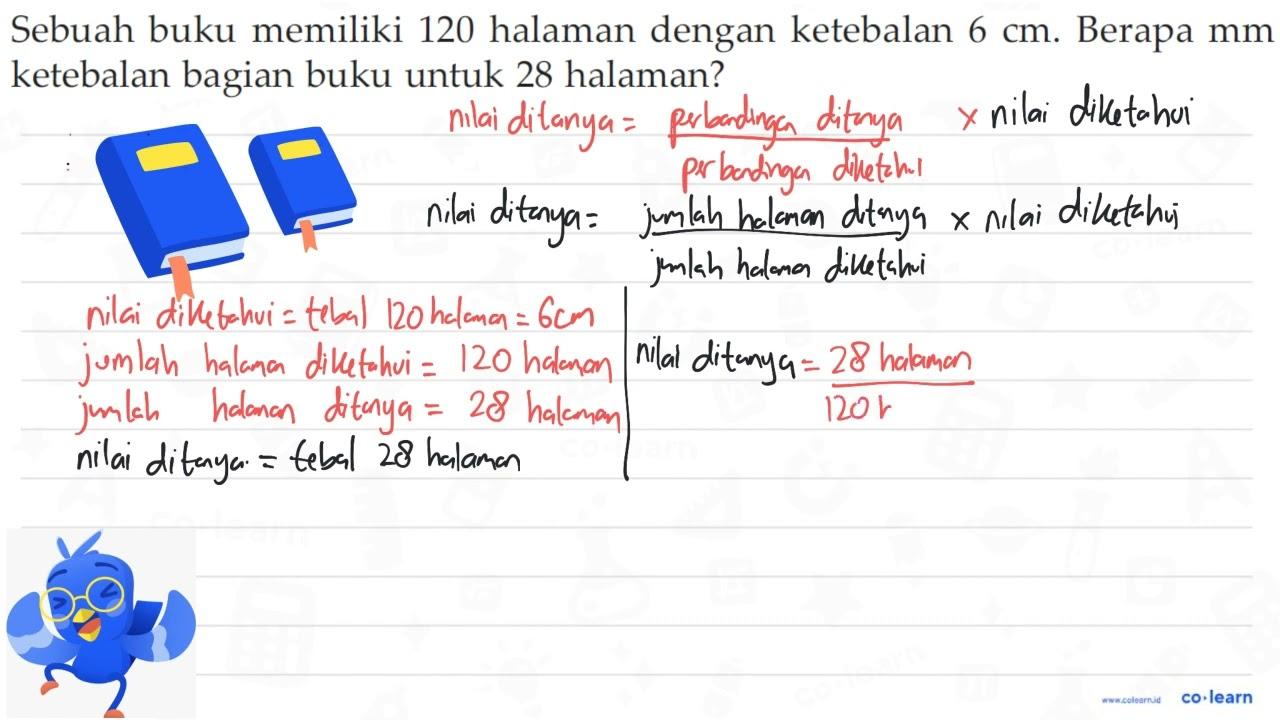 Sebuah buku memiliki 120 halaman dengan ketebalan 6 cm. Berapa mm
ketebalan bagian buku untuk 28 halaman?
nilai ditanya = perbandingan ditanya x nilai diketahui
perbandingan diketahui
nilai ditanya = jumlah halaman ditanya x nilai diketahui
jumlah halaman diketahui
nilai diketahui = tebal 120 halaman = 6cm
jumlah halaman diketahui = 120 halaman
jumlah halaman ditanya = 28 halaman
nilai ditanya = tebal 28 halaman
nilai ditanya = 28 halaman
120 h
www.colearn.id co·learn